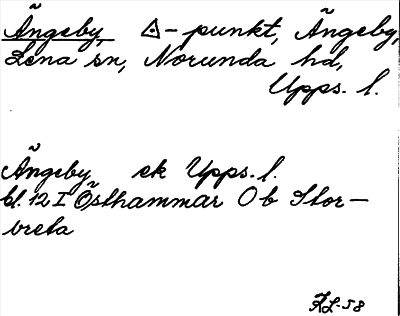 Ängeby △-punkt, Ängeby,
Lena sn, Norunda hd,
Upps. l.
Ängeby ek Upps. l.
bl. 12 I Östhammar Ob Stor-
vreta
ÄL-58